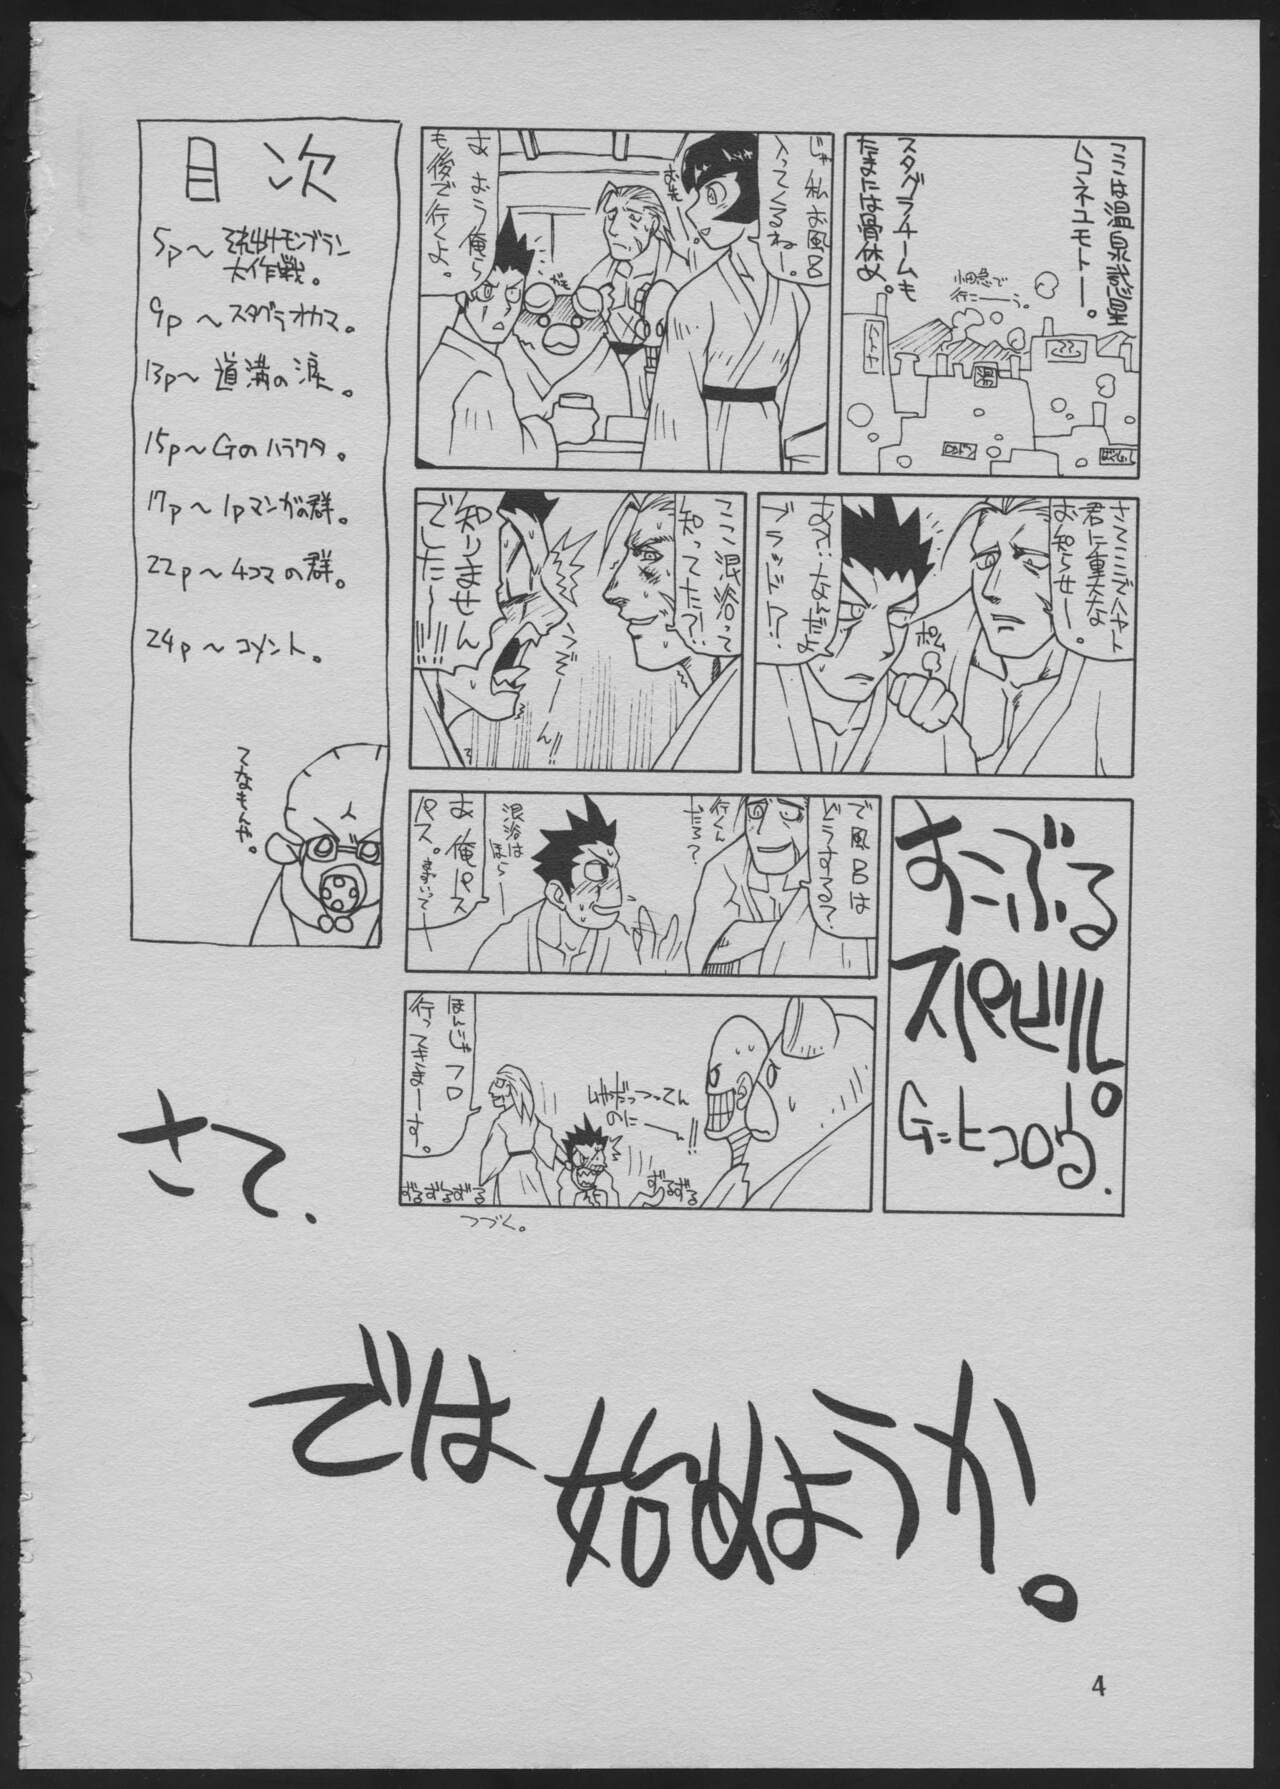 ここは温泉惑星
ムコネユモトー。
スタグラチームも
たまには骨休め。
行こーう。
湯
じゃ私お風呂
入ってくるねー。
あ おう俺ら
も後で行くよ。
さてここでハヤト
君に重大な
お知らせー。
ポン
あて…なんだよ
ブラッド!?
ここ混浴って
知ってた?!
知りません
でした〜!!!
すーぶる
スパビル。
G=ヒコロウ.
で風呂は
どうなる?
行くん
だろ?
混浴は
ほら…
あ 俺パス
パス。
いやだっつってん
のにー!!
ほんじゃフロ
行ってきまーす。
ずるずるずる
ずるずる
つづく。
目次
5p〜それゆけモンブラン
大作戦。
9p〜スタグラオカマ。
13p〜道満の涙。
15p〜Gのハラワタ。
17p〜1pマンガの群。
22p〜4コマの群。
24p〜コメント。
てなもんや。
さて.
では
始めようか。
4